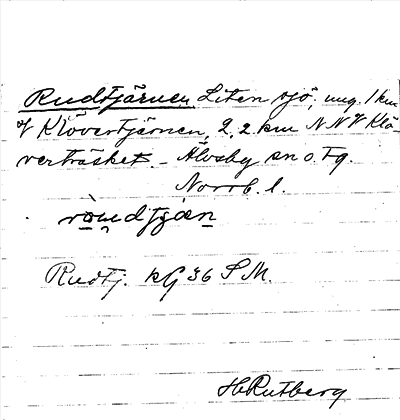 Rudtjärnen Liten sjö, ung. 1 km
V Klövertjärnen, 2,2 km NNV Klö-
verträsket. – Älvsby sn o. tg.
Norrb. l.
Rudtj. kG 36 SM.
H Rutberg